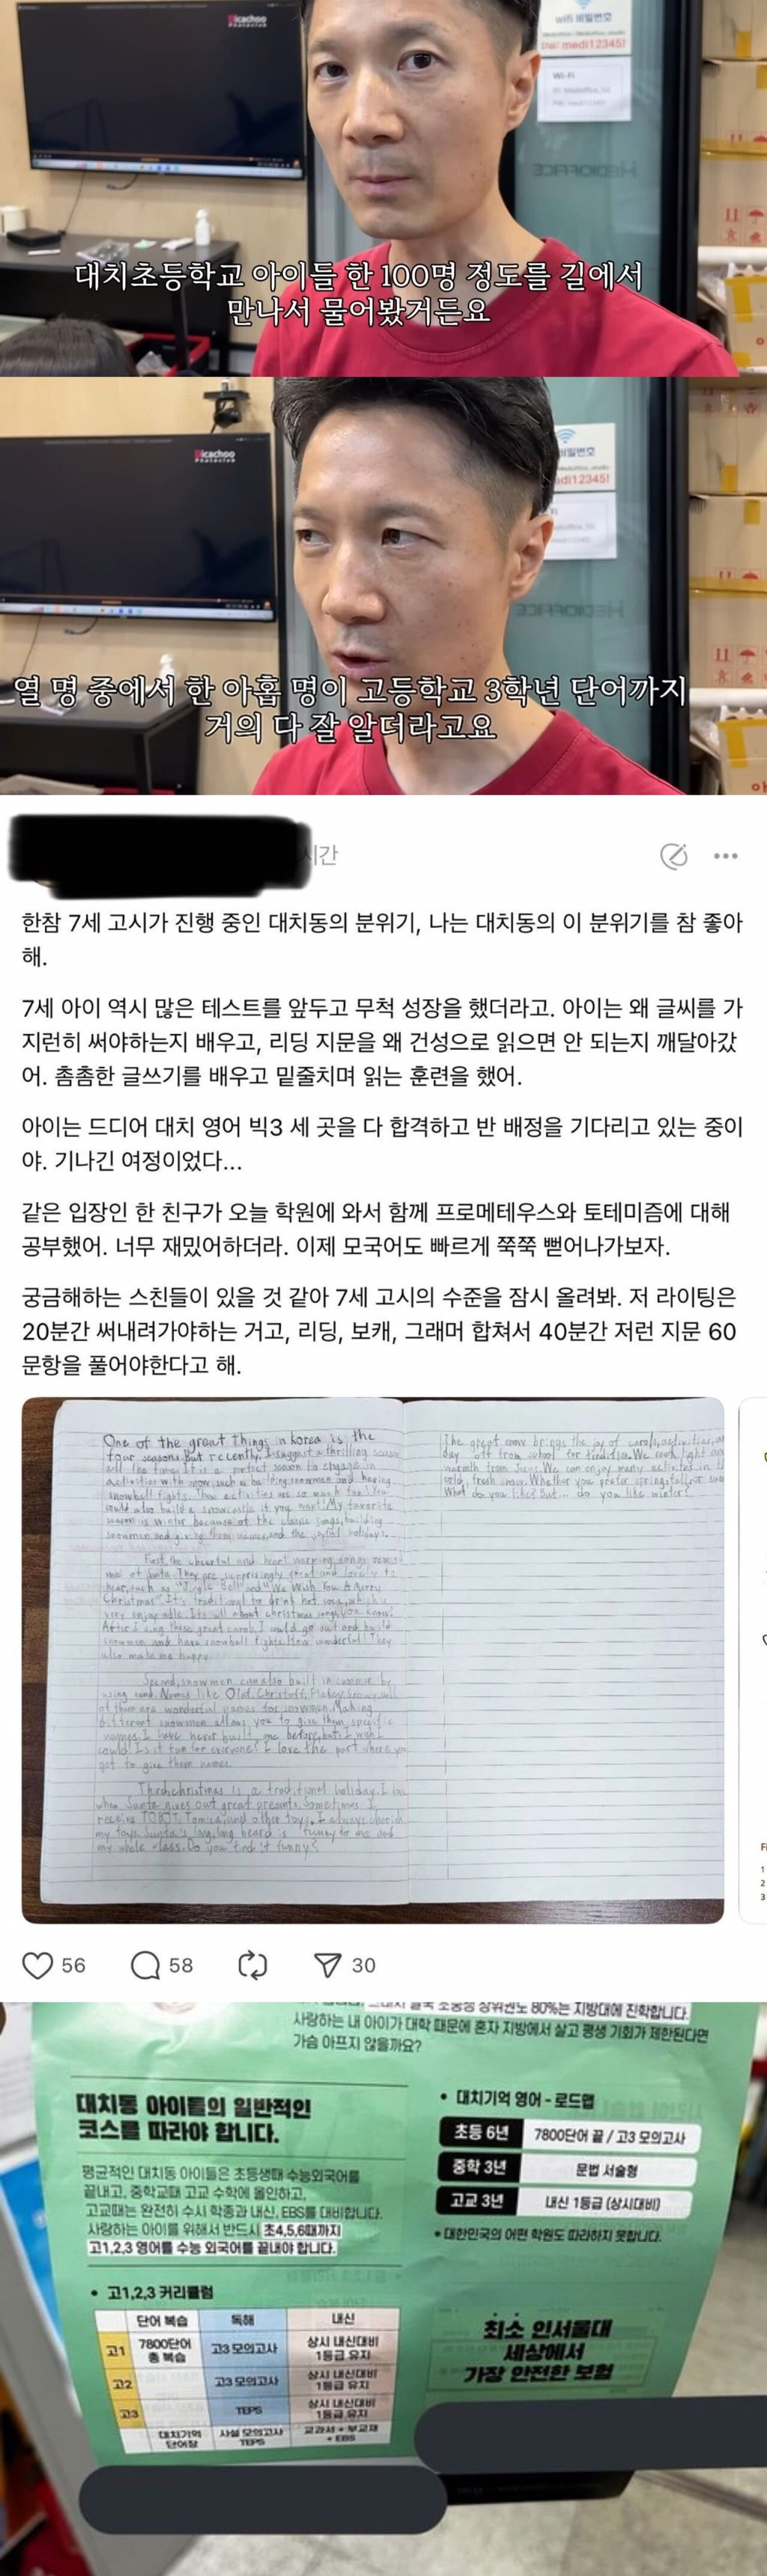 Picachoo
wifi 비밀번호
medi12345!
Wi-Fi
MEDIOFFICE
대치초등학교 아이들 한 100명 정도를 길에서
만나서 물어봤거든요
Picachoo
비밀번호
medi12345!
MEDIOFFICE
열 명 중에서 한 아홉 명이 고등학교 3학년 단어까지
거의 다 잘 알더라고요
시간
한참 7세 고시가 진행 중인 대치동의 분위기, 나는 대치동의 이 분위기를 참 좋아
해.
7세 아이 역시 많은 테스트를 앞두고 무척 성장을 했더라고. 아이는 왜 글씨를 가
지런히 써야하는지 배우고, 리딩 지문을 왜 건성으로 읽으면 안 되는지 깨달아갔
어. 촘촘한 글쓰기를 배우고 밑줄치며 읽는 훈련을 했어.
아이는 드디어 대치 영어 빅3 세 곳을 다 합격하고 반 배정을 기다리고 있는 중이
야. 기나긴 여정이었다...
같은 입장인 한 친구가 오늘 학원에 와서 함께 프로메테우스와 토테미즘에 대해
공부했어. 너무 재밌어하더라. 이제 모국어도 빠르게 쭉쭉 뻗어나가보자.
궁금해하는 스친들이 있을 것 같아 7세 고시의 수준을 잠시 올려봐. 저 라이팅은
20분간 써내려가야하는 거고, 리딩, 보캐, 그래머 합쳐서 40분간 저런 지문 60
문항을 풀어야한다고 해.
One of the great things in korea is the
four seasons. But recently, I suggest a thrilling season
all the time. It is a perfect season to engage in
activities with snow, such as building snowmen and having
snowball fights. The activities are so much fun! You
could also build a snowcastle if you want! My favorite
season is winter because of the classic songs, building
snowmen and giving them names, and the joyful holidays.
First, the cheerful and heart warming songs remind
me of Santa. They are surprisingly great and lovely to
hear, such as "Jingle Bell" and "We Wish You A Merry
Christmas". It's traditional to drink hot coco, which is
very enjoyable. It's all about christmas songs, you know!
After I sing these great carols, I would go out and build
snowmen and have snowball fights. How wonderful! They
also make me happy.
Second, snowmen can also built in summer by
using sand. Names like Olaf, Christoff, Flakey, Snowy, all
of them are wonderful names for snowmen. Making
different snowmen allows you to give them specific
names. I have never built one before, but I wish I
could! Is it fun for everyone? I love the part where you
get to give them names.
Third, christmas is a traditional holiday. I love
when Santa gives out great presents. Sometimes, I
receive TOBOT, Tomica, and other toys. I always cherish
my toys. Santa's long, long beard is funny to me and
my whole class. Do you find it funny?
The great snow brings the joy of carols, activities, and
day off from school for tradition. We
warmth from We can enjoy many activities in the
cold, fresh snow. Whether you prefer spring, fall, or sum
What do you like? But... do you like winter?
56
58
30
80%는 지방대에 진학합니다.
사랑하는 내 아이가 대학 때문에 혼자 지방에서 살고 평생 기회가 제한된다면
가슴 아프지 않을까요?
대치동 아이들의 일반적인
코스를 따라야 합니다.
평균적인 대치동 아이들은 초등생때 수능외국어를
끝내고, 중학교때 고교 수학에 올인하고,
고교때는 완전히 수시 학종과 내신, EBS를 대비합니다.
사랑하는 아이를 위해서 반드시 초4,5,6때까지
고1,2,3 영어를 수능 외국어를 끝내야 합니다.
• 고1,2,3 커리큘럼
단어 복습 독해 내신
고1 7800단어 총 복습 고3 모의고사 상시 내신대비 1등급 유지
고2 고3 모의고사 상시 내신대비 1등급 유지
고3 TEPS 상시 내신대비 1등급 유지
대치기억 단어장 사설 모의고사 TEPS 교과서 + 부교재 + EBS
• 대치기억 영어 - 로드맵
초등 6년 7800단어 끝 / 고3 모의고사
중학 3년 문법 서술형
고교 3년 내신 1등급 (상시대비)
• 대한민국의 어떤 학원도 따라하지 못합니다.
최소 인서울대
세상에서
가장 안전한 보험